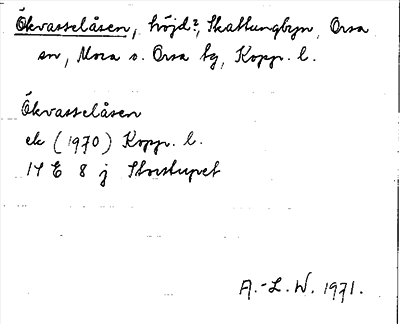 Ökvasselåsen, höjd?, Skattungbyn, Orsa
sn, Mora o. Orsa tg, Kopp. l.
Ökvasselåsen
ek (1970) Kopp. l.
14 E 8 j Storstupet
A.-L. W. 1971.